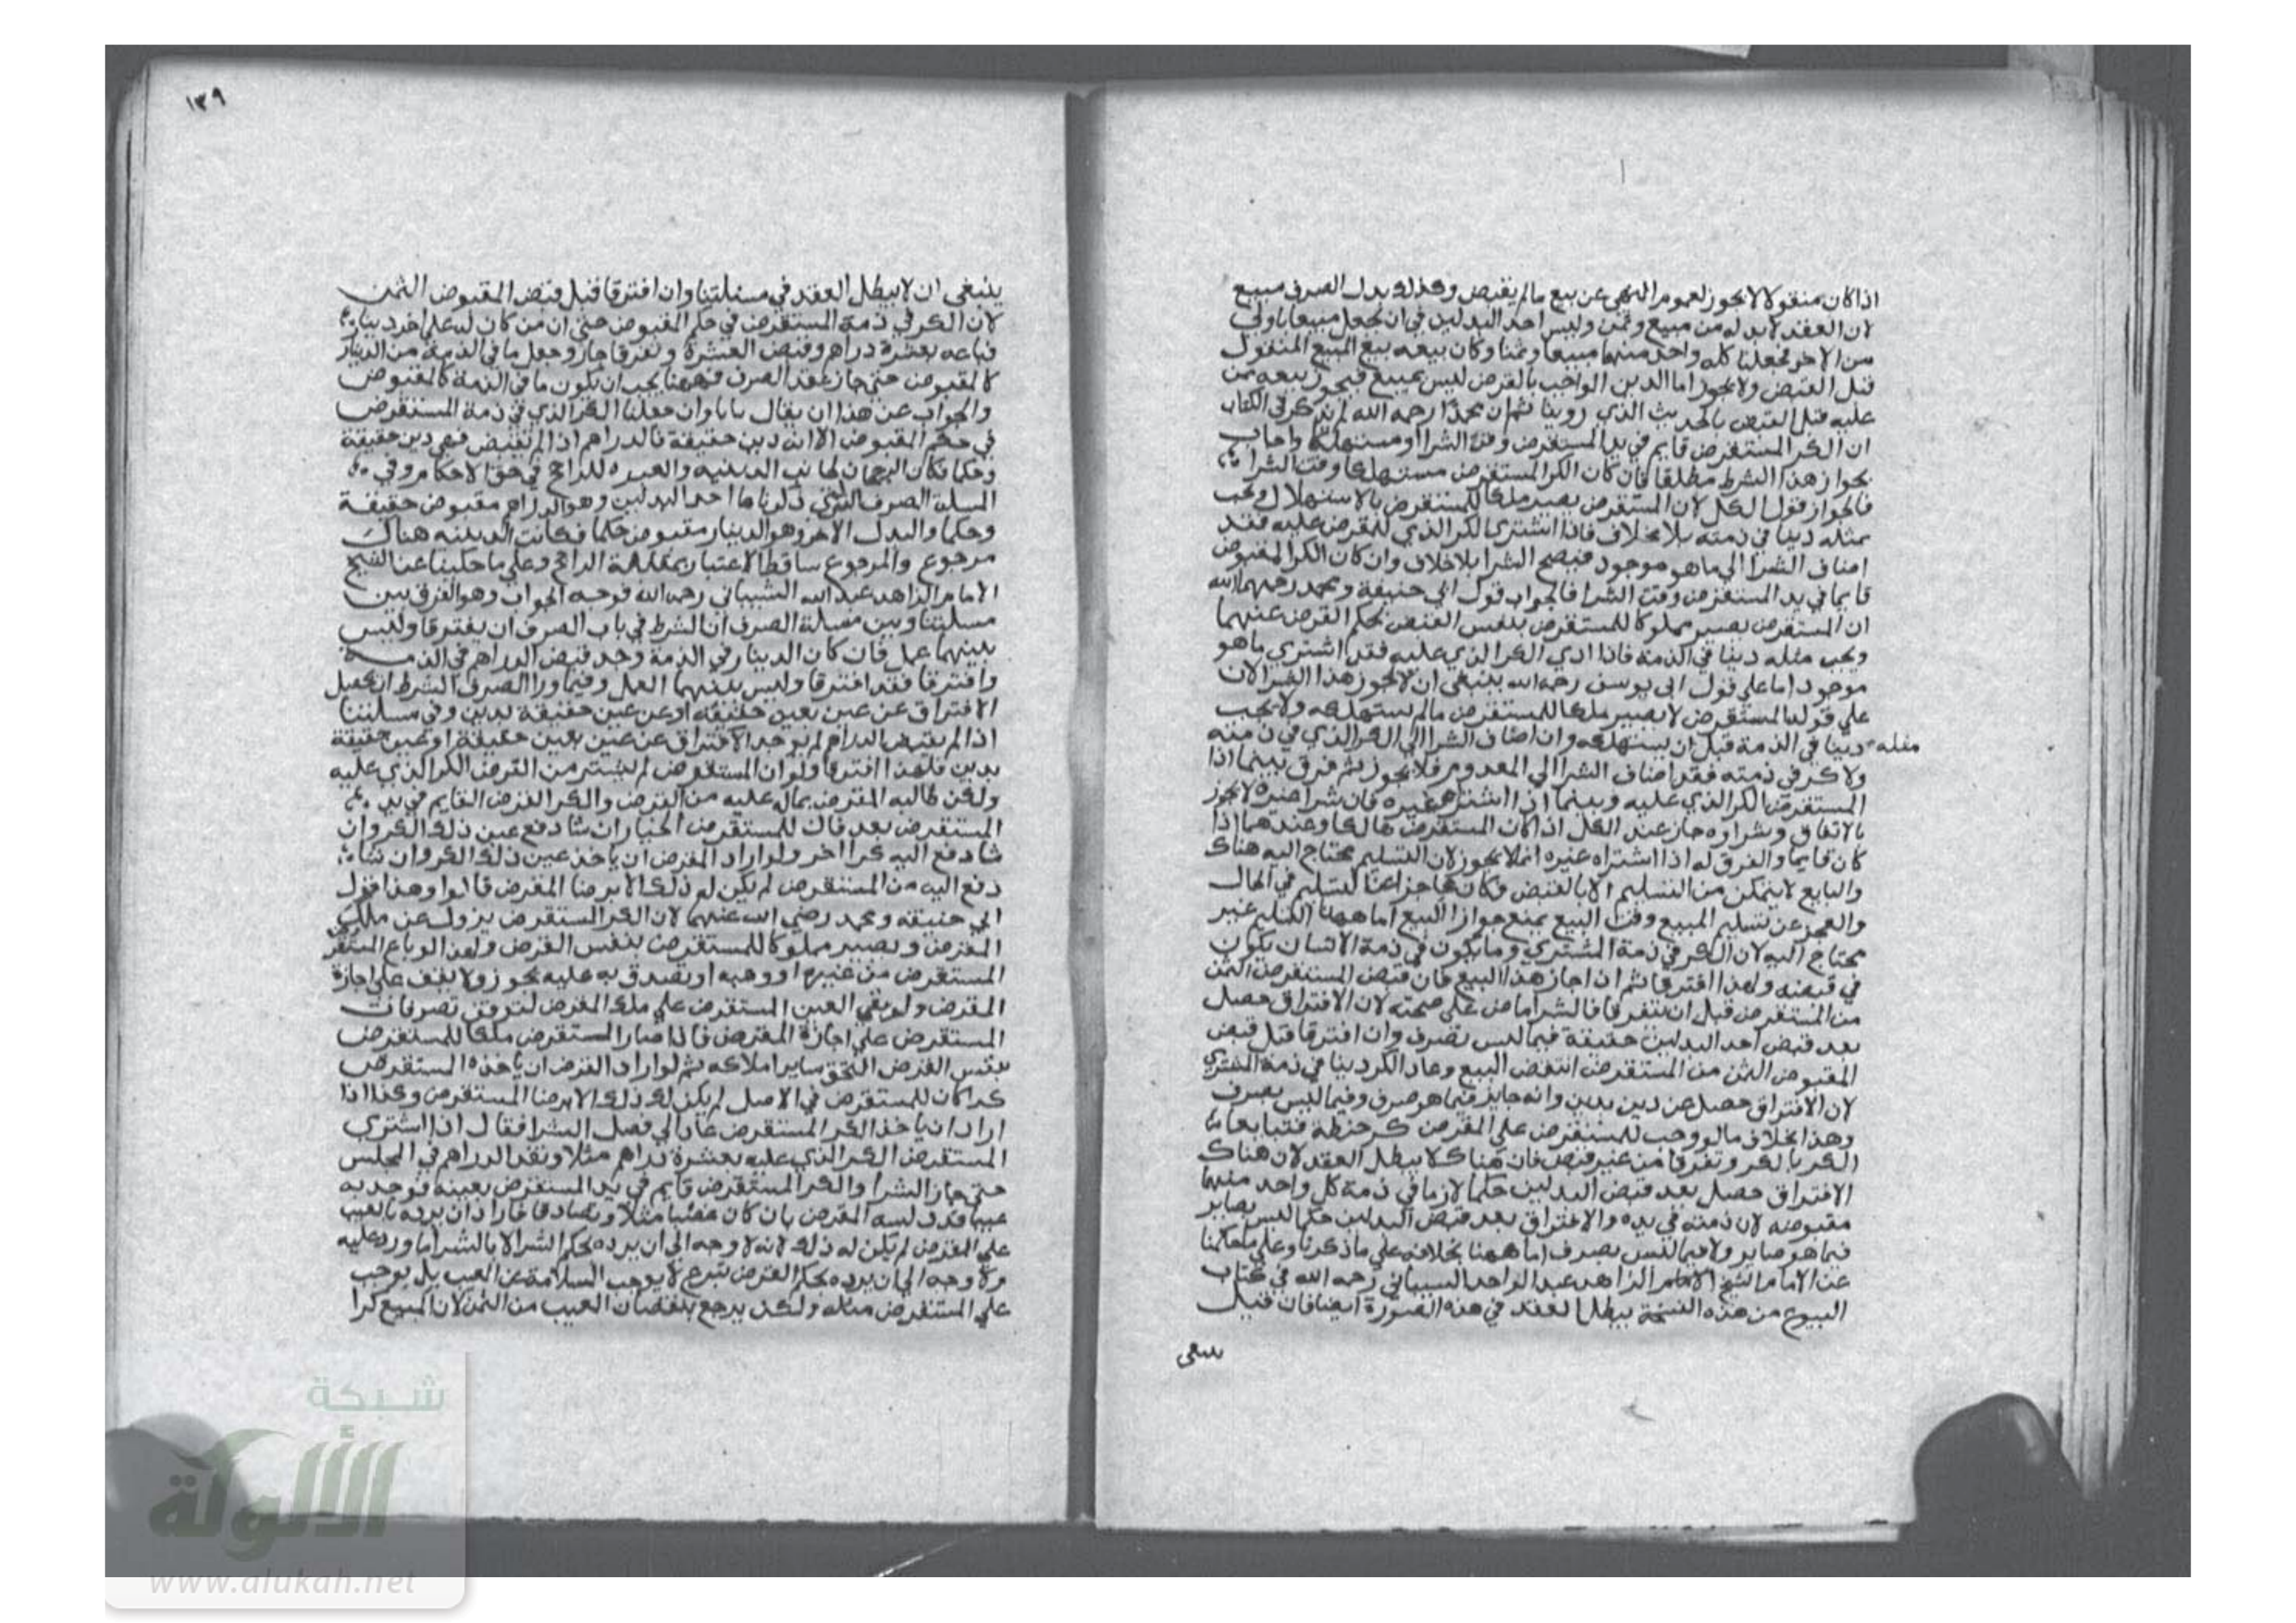 اذا كان منقولا لا يجوز لعموم النهى عن بيع مالم يقبض وكذلك بدل الصرف مبيع
لان العقد لا بد له من مبيع وثمن وليس احد البدلين في ان يجعل مبيعا باولى
من الاخر فجعلنا كله واحد منهما مبيعا وثمنا وكان بيعه بيع المبيع المنقول
قبل القبض ولا يجوز اما الدين الواجب بالقرض ليس بمبيع فيجوز بيعه ممن
عليه قبل القبض بالحديث الذي روينا ثم ان محمدا رحمه الله لم يذكر في الكتاب
ان الكر المستقرض قايم في يد المستقرض وقت الشرا او مستهلكا واجاب
بجواز هذا الشرط مطلقا فان كان الكر المستقرض مستهلكا وقت الشرا
فالجواز قول الكل لان المستقرض يصير ملكا للمستقرض بالاستهلاك ويجب
مثله دينا في ذمته بلا خلاف فاذا اشترى الكر الذي للمقرض عليه فقد
اضاف الشرا الى ما هو موجود فيصح الشرا بلا خلاف وان كان الكر المقبوض
قايما في يد المستقرض وقت الشرا فالجواب قول ابي حنيفة ومحمد رحمهما الله
ان المستقرض يصير مملوكا للمستقرض بنفس القبض بحكم القرض عنهما
ويجب مثله دينا في الذمة فاذا ادي الكر الذي عليه فقد اشتري ما هو
موجود اما على قول ابي يوسف رحمه الله ينبغي ان لا يجوز هذا الشرا لان
علي قوله المستقرض لا يصير ملكا للمستقرض مالم يستهلكه ولا يجب
مثله دينا في الذمة قبل ان يستهلكه وان اضاف الشرا الي الكر الذي في ذمته
ولا كر في ذمته فقد اضاف الشرا الي المعدوم فلا يجوز ثم فرق بينما اذا
المستقرض الكر الذي عليه وبينما اذا اشتراه غيره فان شرا غيره لا يجوز
بالاتفاق وشراوه جاز عند الكل اذا كان المستقرض هالكا وعندهما اذا
كان قايما والفرق له اذا اشتراه غيره انما لا يجوز لان التسليم محتاج اليه هناك
والبايع لا يتمكن من التسليم الا بالقبض فكان عاجزا عن التسليم في الحال
والعجز عن تسليم المبيع وقت البيع يمنع جواز البيع اما ههنا التسليم غير
محتاج اليه لان الكر في ذمة المشتري وما يكون في ذمة الانسان يكون
في قبضه ولهذا افترقا ثم اذا جاز هذا البيع فان قبض المستقرض الثمن
من المستقرض قبل ان يتفرقا فالشرا ماض على صحته لان الافتراق حصل
بعد قبض احد البدلين حقيقة فيما ليس بصرف وان افترقا قبل قبض
المقبوض الثمن من المستقرض انتقض البيع وعاد الكر دينا في ذمة المشتري
لان الافتراق حصل عن دين بدين وانه جايز فيما هو صرف وفيما ليس بصرف
وهذا بخلاف ما لو وجب للمستقرض علي المقرض كر حنطة فتبايعا
الكر بالكر وتفرقا من غير قبض فان هناك لا يبطل العقد لان هناك
الافتراق حصل بعد قبض البدلين حكما لان ما في ذمة كل واحد منهما
مقبوضه لان ذمته في يده والافتراق بعد قبض البدلين حكما ليس بصاير
فيما هو صاير ولا فيما ليس بصرف اما ههنا بخلافه علي ما ذكرنا وعلي ما حكينا
عن الامام الشيخ الامام الزاهد عبد الواحد الشيباني رحمه الله في كتاب
البيوع من هذه النسخة يبطل العقد في هذه الصورة ايضا فان قيل
ينبغى
١٣٩
ينبغى ان لا يبطل العقد في مسئلتنا وان افترقا قبل قبض المقبوض الثمن
لان الكر في ذمة المستقرض في حكم المقبوض حتى ان من كان له علي اخر دينار
فباعه بعشرة دراهم وقبض العشرة وتفرقا جاز وجعل ما في الذمة من الدينار
كالمقبوض حتى جاز عقد الصرف فههنا يجب ان يكون ما في الذمة كالمقبوض
والجواب عن هذا ان يقال باناوان جعلنا الكر الذي في ذمة المستقرض
في حكم المقبوض الا انه دين حقيقة فالدراهم اذا لم تقبض فهي دين حقيقة
وحكما فكان الرجحان لجانب الدينيه والعبره للراجح في حق الاحكام وفي
المسلة الصرف التي ذكرناها احد البدلين وهو الدراهم مقبوض حقيقة
وحكما والبدل الاخر وهو الدينار مقبوض حكما فكانت الدينيه هناك
مرجوع والمرجوع ساقط الاعتبار بمقابلة الراجح وعلي ما حكينا عن الشيخ
الامام الزاهد عبد الله الشيباني رحمه الله فوجه الجواب وهو الفرق بين
مسلتنا وبين مسلة الصرف ان الشرط في باب الصرف ان يفترقا وليس
بينهما عمل فان كان الدينار في الذمة وجد قبض الدراهم في الذمة
وافترقا فقد افترقا وليس بينهما العمل وفيما ورا الصرف الشرط ان يحصل
الافتراق عن عين بعين حقيقة او عن عين حقيقة بدين وفي مسلتنا
اذا لم يقبض الدراهم لم يوجد الافتراق عن عين بعين حقيقة او عين حقيقة
بدين فلهذا افترقا ولو ان المستقرض لم يشتر من القرض الكر الذي عليه
ولكن طالبه المقرض بماله عليه من القرض والكر القرض القايم في يد
المستقرض بعد فان للمستقرض الخيار ان شا دفع عين ذلك الكر وان
شا دفع اليه كرا اخر ولو اراد المقرض ان ياخذ عين ذلك الكر وان شاء
دفع اليه من المستقرض لم يكن له ذلك الا برضا المقرض قالوا وهذا قول
ابي حنيفه ومحمد رضي الله عنهما لان الكر المستقرض يزول عن ملك
المقرض ويصير مملوكا للمستقرض بنفس القرض ولهذا لو باع المستقرض
المستقرض من غيره او وهبه او تصدق به عليه يجوز ولا يقف علي اجازة
المقرض ولو بقي العين المستقرض علي ملك المقرض لتوقف تصرفات
المستقرض علي اجازة المقرض فاذا صار المستقرض ملكا للمستقرض
بنفس القرض التحق بساير املاكه ثم لو اراد القرض ان ياخذه المستقرض
كر اكان للمستقرض في الاصل لم يكن له ذلك الا برضا المستقرض وكذا اذا
اراد ان ياخذ الكر المستقرض عاد الي فصل الشرا فقال اذا اشتري
المستقرض الكر الذي عليه بعشرة دراهم مثلا ونقد الدراهم في المجلس
حتى جاز الشرا والكر المستقرض قايم في يد المستقرض بعينه فوجد به
عيبا قد دلسه المقرض بان كان مثلا وتصادقا فاراد ان يرده بالعيب
علي المقرض لم يكن له ذلك لانه لا وجه الي ان يرده بحكم الشرا لان الشرا ما ورد عليه
ولا وجه الي ان يرده بحكم القرض تبرع لا يوجب السلامة عن العيب بل يوجب
علي المستقرض مثله ولكن يرجع بنقصان العيب من الثمن لان المبيع كرا
شبكة
الألوكة
www.alukah.net